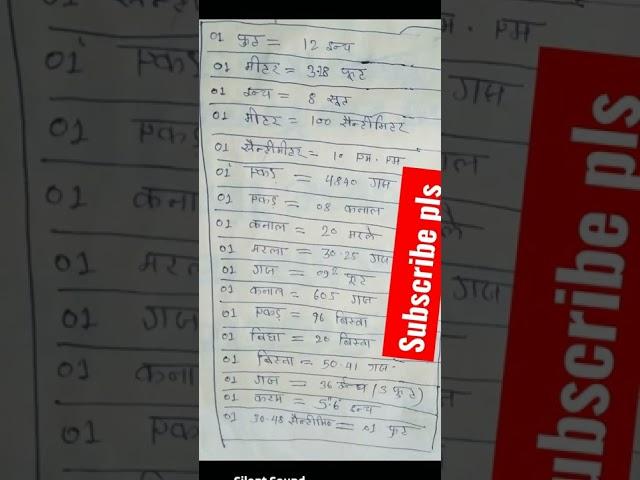 01 फुट = 12 इन्च
01 मीटर = 3.28 फूट
01 इन्च = 8 सूट
01 मीटर = 100 सैन्टीमिटर
01 सैन्टीमीटर = 10 एम.एम
01 एकड़ = 4840 गज
01 एकड़ = 08 कनाल
01 कनाल = 20 मरले
01 मरला = 30.25 गज
01 गज = 09² फूट
01 कनाल = 605 गज
01 एकड़ = 96 बिस्वा
01 बिघा = 20 बिस्वा
01 बिस्वा = 50.41 गज
01 गज = 36 इन्च (3 फुट)
01 करम = 5"6' इन्च
01 30.48 सैन्टीमि = 01 फूट
Subscribe pls
Silent Sound